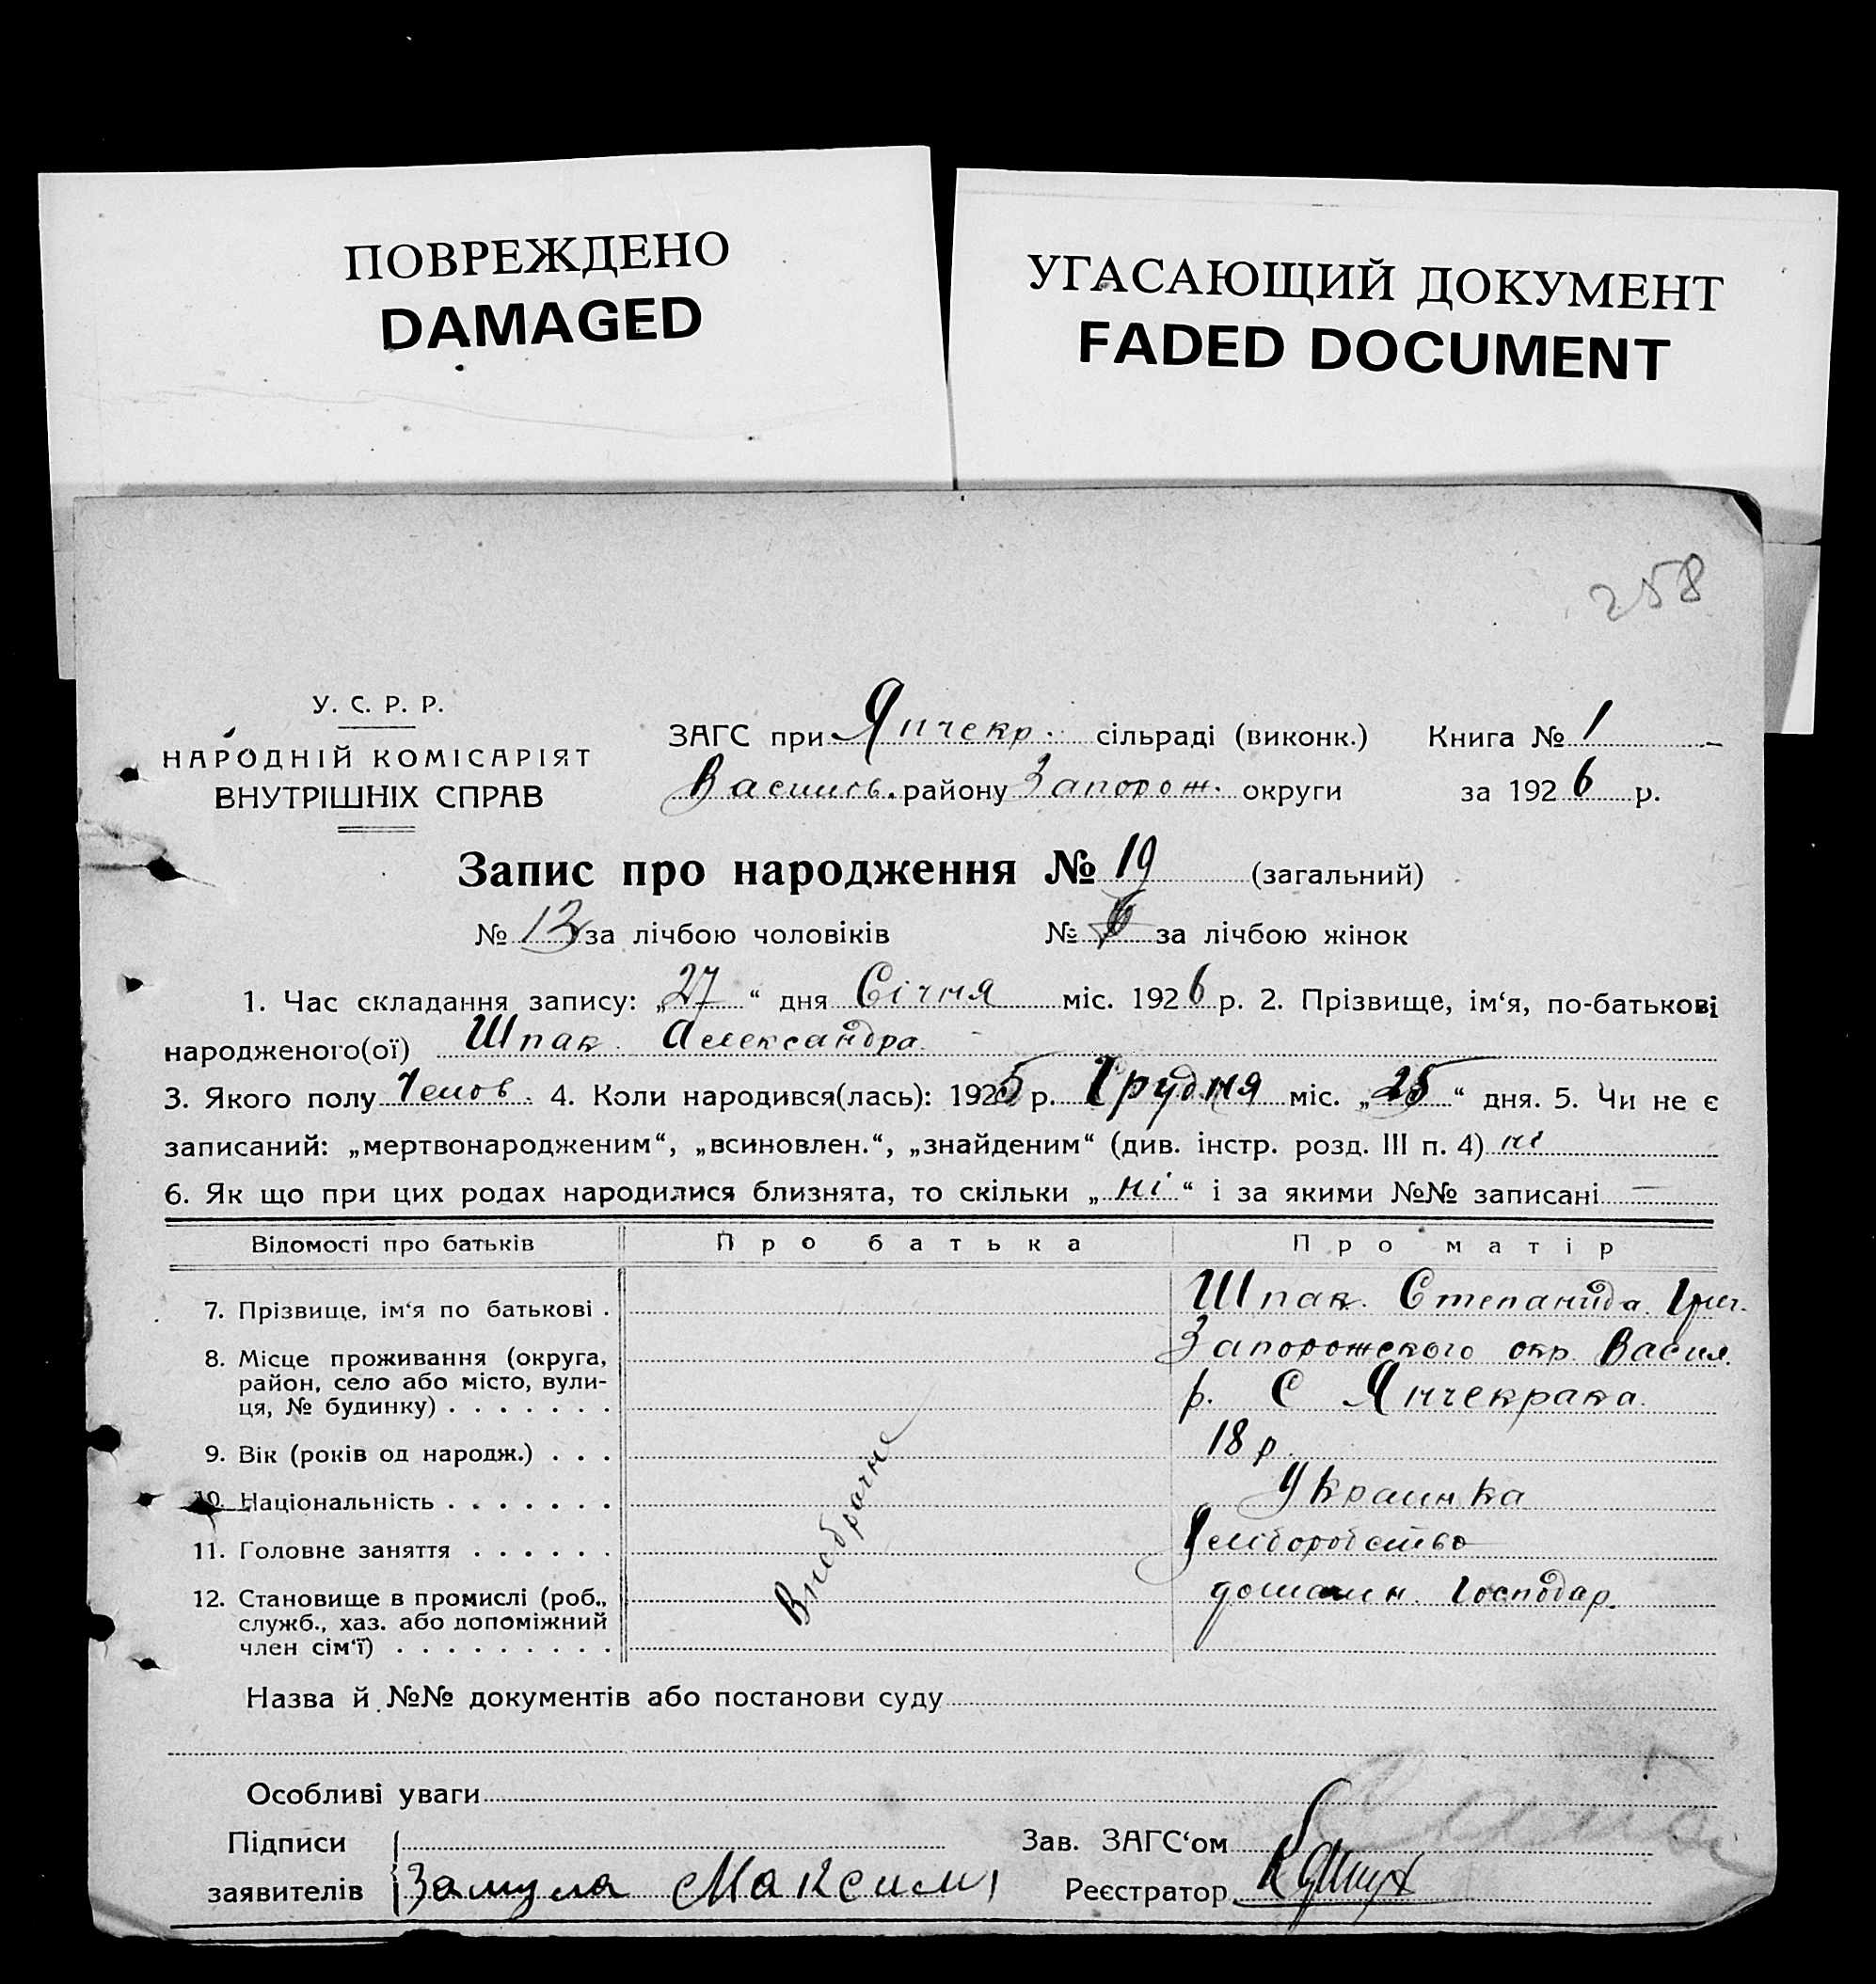 ПОВРЕЖДЕНО
DAMAGED
УГАСАЮЩИЙ ДОКУМЕНТ
FADED DOCUMENT
258
У. С. Р. Р.
НАРОДНІЙ КОМІСАРІЯТ
ВНУТРІШНІХ СПРАВ
ЗАГС при Янчекр. сільраді (виконк.) Книга № 1
Васил. району Запорож. округи за 1926 р.
Запис про народження № 19 (загальний)
№ 13 за лічбою чоловіків № за лічбою жінок
1. Час складання запису: „27“ дня Січня міс. 1926 р. 2. Прізвище, ім‘я, по-батькові
народженого(ої) Шпак Александра
3. Якого полу Челов. 4. Коли народився(лась): 1925 р. Грудня міс. „25“ дня. 5. Чи не є
записаний: „мертвонародженим“, „всиновлен.“, „знайденим“ (див. інстр. розд. III п. 4) ні
6. Як що при цих родах народилися близнята, то скільки „ні“ і за якими №№ записані —
Відомості про батьків Про батька Про матір
7. Прізвище, ім‘я по батькові . Шпак Степанида Григ.
8. Місце проживання (округа, Запорожского окр Васил.
район, село або місто, вули-
ця, № будинку) . . . . . . . р. С Янчекрака.
9. Вік (років од народж.) . . . 18 р.
10. Національність . . . . . . . Украинка
11. Головне заняття . . . . . . Хліборобство
12. Становище в промислі (роб., домашн. Господар.
служб., хаз. або допоміжний
член сім‘ї) . . . . . . . . .
Внебрачне
Назва й №№ документів або постанови суду
Особливі уваги
Підписи Зав. ЗАГС‘ом
заявителів Замула Максим Реєстратор